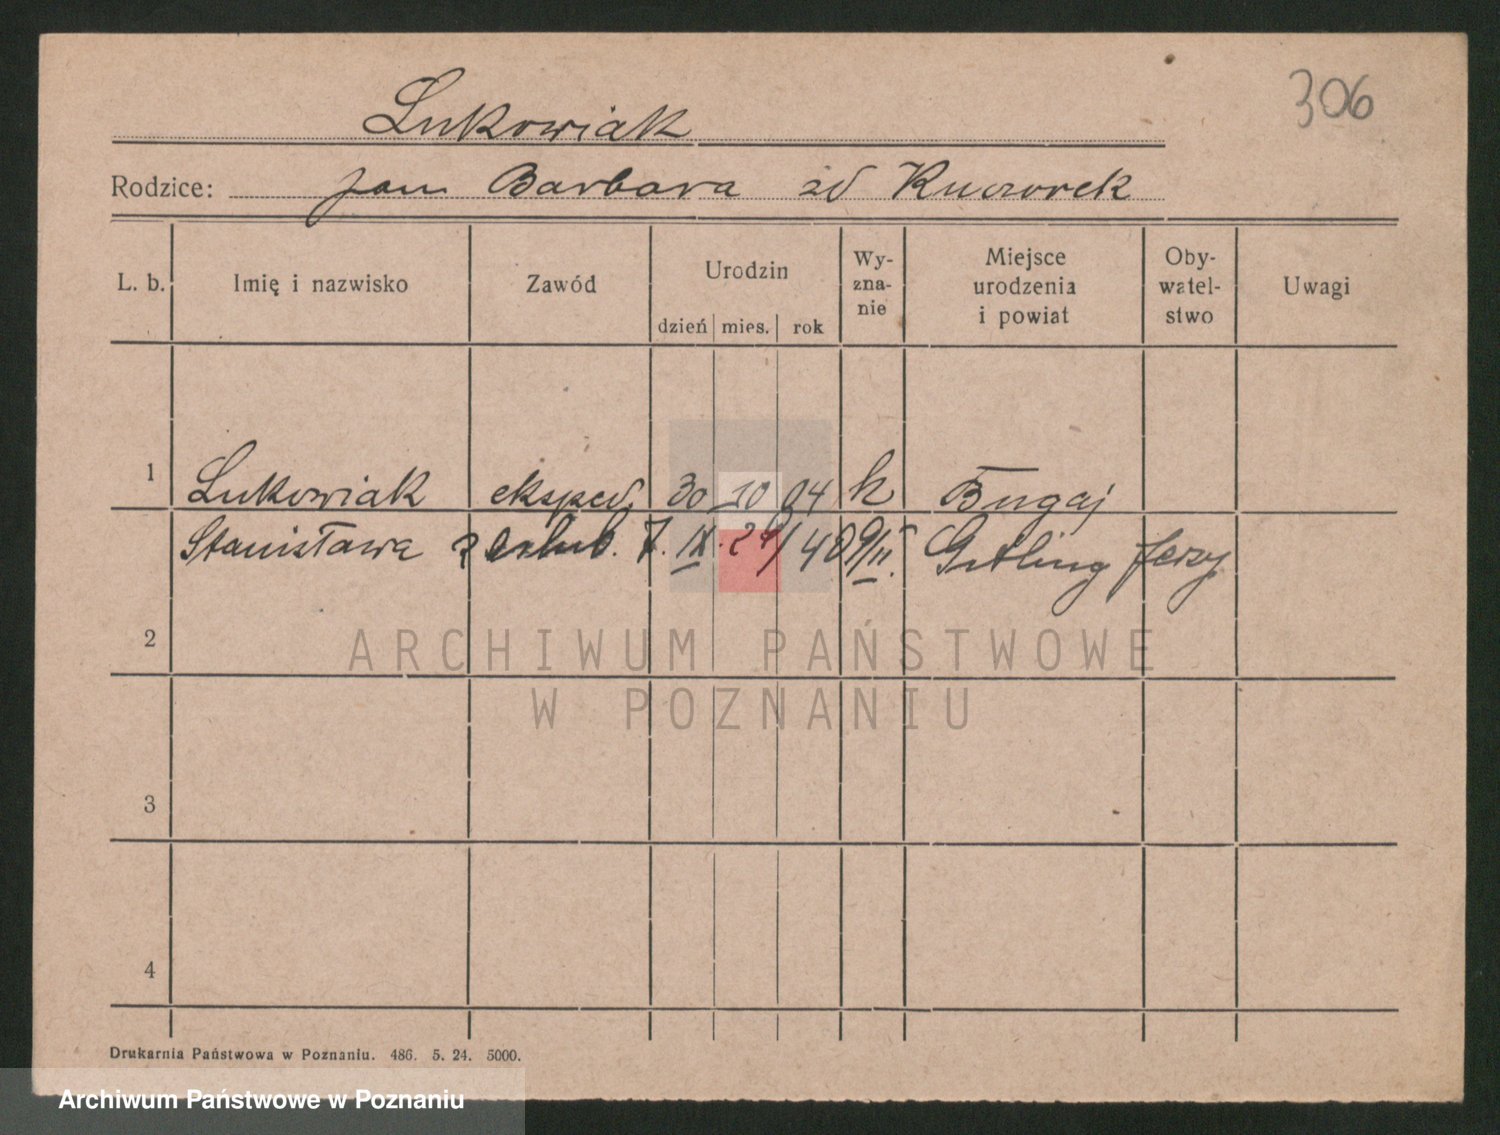 306
Lukowiak
Rodzice: Jan Barbara zd
L. b. Imię i nazwisko Zawód Urodzin dzień mies. rok Wy-zna-nie Miejsce urodzenia i powiat Oby-watel-stwo Uwagi
1 Lukowiak eksped. 30 10 04 k Bugaj
Stanisława 7. IX. Jerzy
2
ARCHIWUM PAŃSTWOWE
W POZNANIU
3
4
Drukarnia Państwowa w Poznaniu. 486. 5. 24. 5000.
Archiwum Państwowe w Poznaniu